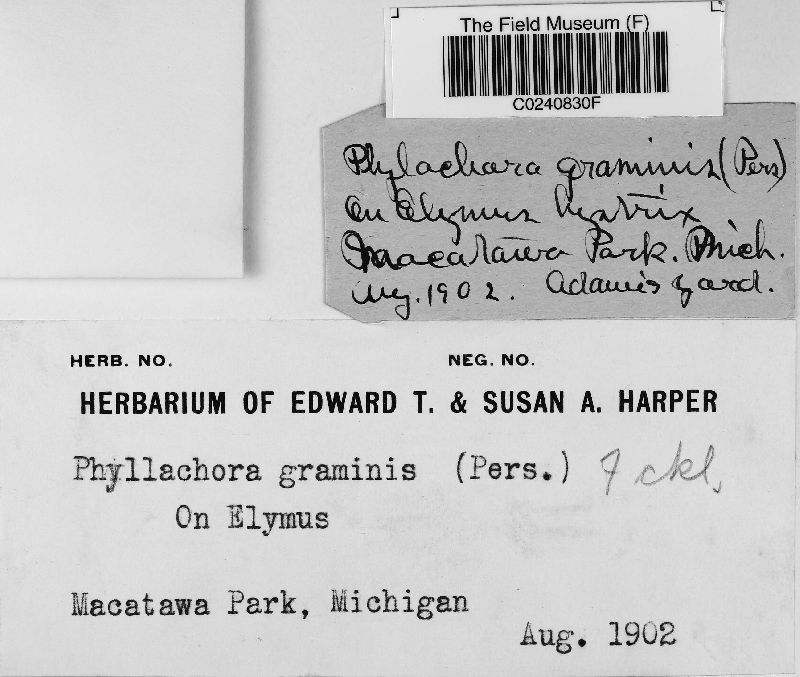 The Field Museum (F)
C0240830F
Phylachara graminis (Pers)
On Elymus hystrix
Macatawa Park. Mich.
Aug. 1902. Adams yard.
HERB. NO. NEG. NO.
HERBARIUM OF EDWARD T. & SUSAN A. HARPER
Phyllachora graminis (Pers.) Fckl.
On Elymus
Macatawa Park, Michigan
Aug. 1902